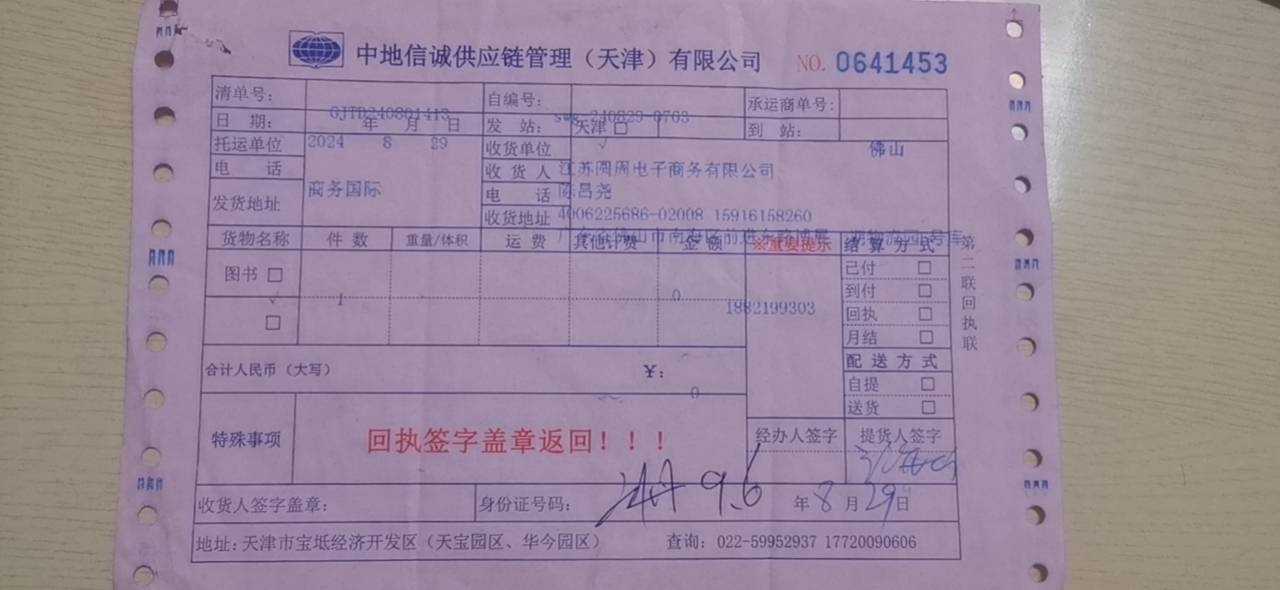 中地信诚供应链管理（天津）有限公司 NO. 0641453
清单号： 自编号： 承运商单号：
GJTD240801413 240829-0703
日 期： 年 月 日 发 站： 天津 □ 到 站：
托运单位 2024 8 29 收货单位 √ 佛山
电 话 收 货 人 江苏圆周电子商务有限公司
商务国际 电 话 陈吕尧
发货地址 收货地址 4006225686-02008 15916158260
佛山市南海区前进东路 物流园 号库
货物名称 件 数 重量/体积 运 费 其他计费 金 额 ※重要提示 结 算 方 式
图书 □ 已付 □
√ 1 0 到付 □
1882199303
□ 回执 □
月结 □
合计人民币（大写） ¥： 配 送 方 式
0 自提 □
送货 □
特殊事项 回执签字盖章返回！！！ 经办人签字 提货人签字
收货人签字盖章： 身份证号码： 9.6 年 8 月 29 日
地址：天津市宝坻经济开发区（天宝园区、华今园区） 查询：022-59952937 17720090606
第二联回执联